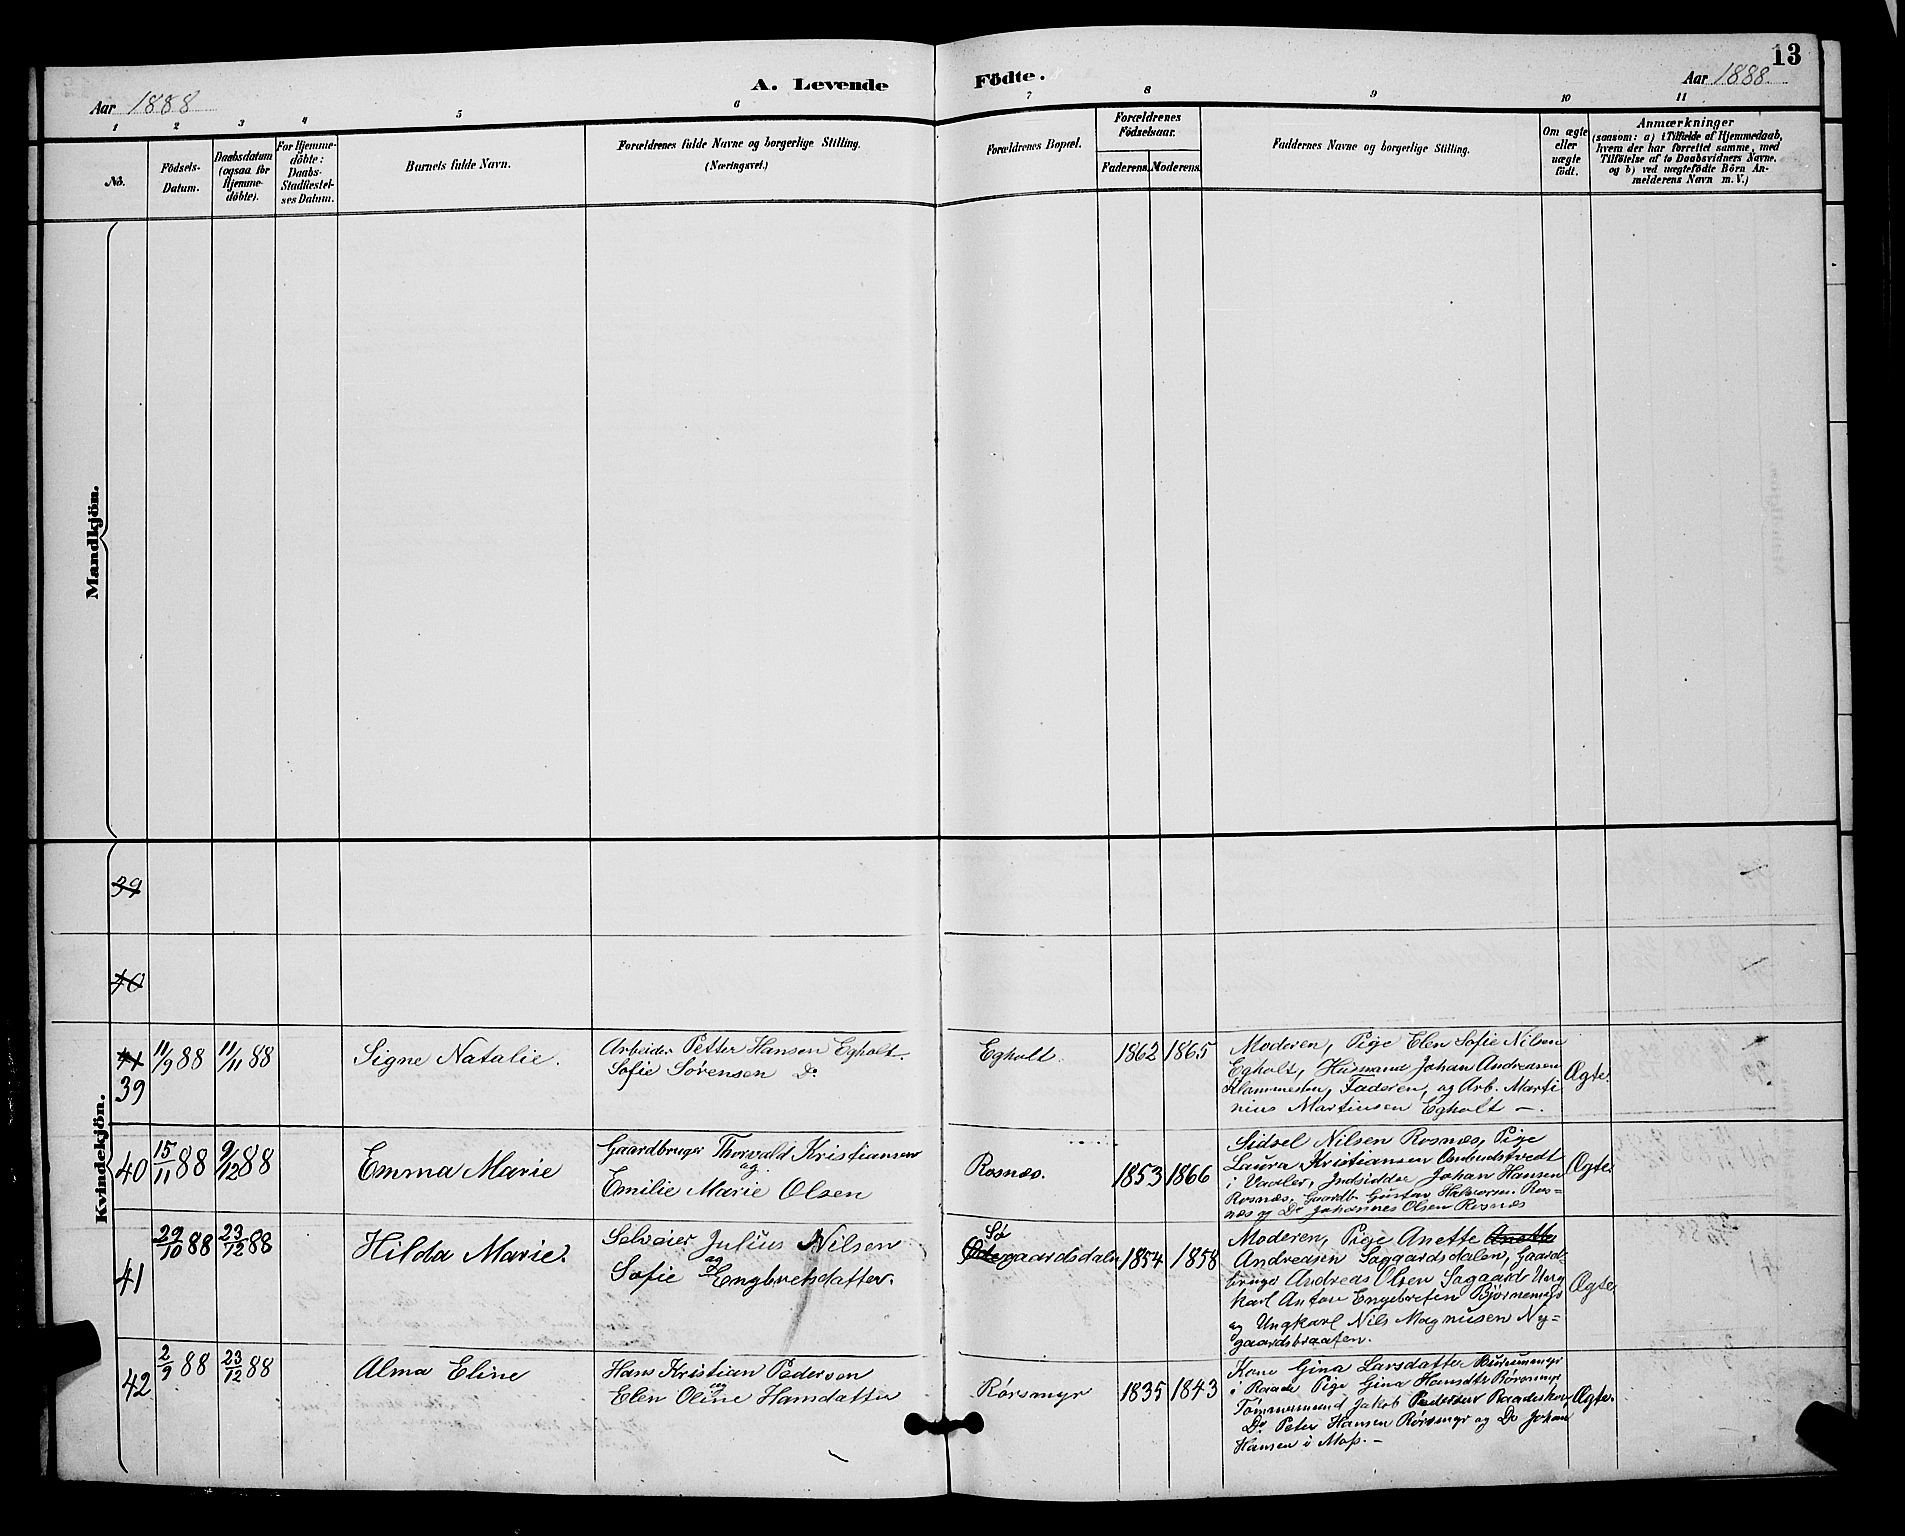 13
A. Levende Födte.
Aar 1888
Aar 1888.
1 2 3 4 5 6 7 8 9 10 11
No.
Födsels-
Datum.
Daabsdatum
(ogsaa for
Hjemme-
döbte).
For Hjemme-
döbte:
Daabs-
Stadfæstel-
ses Datum.
Barnets fulde Navn.
Forældrenes fulde Navne og borgerlige Stilling.
(Næringsvei.)
Forældrenes Bopæl.
Forældrenes
Födselsaar.
Faderens. Moderens.
Faddernes Navne og borgerlige Stilling.
Om ægte
eller
uægte
födt.
Anmærkninger
(saasom: a) i Tilfælde af Hjemmedaab,
hvem der har forrettet samme, med
Tilföielse af to Daabsvidners Navne,
og b) ved uægtefödte Börn An-
melderens Navn m. V.)
Mandkjön.
Kvindekjön.
39
40
41
39
11/9 88
11/11 88
Signe Natalie.
Arbeider Petter Hansen Egholt.
Sofie Sørensen Do
Egholt.
1862 1865
Moderen, Pige Elen Sofie Nilsen
Egholt, Husmand Johan Andreasen
Faderen, og Arb. Marti
nius Martinsen Egholt -.
Ægte.
40
15/11 88
9/12 88
Emma Marie
Gaardbruger Thorvald Kristiansen
og
Emilie Marie Olsen
Rosnæs.
1853 1866
Sidsel Nilsen Rosnæs, Pige
Laura Kristiansen Ombudstvedt
i Vaaler, Indsidder Johan Hansen
Rosnæs, Gaardb. Gustav Halvorsen Ros-
næs og Do Johannes Olsen Rosnæs
Ægte.
41
29/10 88
23/12 88
Hilda Marie.
Selveier Julius Nilsen
og
Sofie Engbretsdatter.
Sø
Ødegaardsdalen
1854 1858
Moderen, Pige Anette Anette
Andreasen Søgaardsdalen, Gaard-
bruger Andreas Olsen Søgaard, Ung
karl Anton Engebretsen Bjørnemyr
og Ungkarl Nils Magnusen Ny=
gaardsbraaten.
Ægte.
42
2/9 88
23/12 88
Alma Eline
Hans Kristian Pedersen
og
Elen Oline Hansdatter
Rørsmyr
1835 1843
Kone Gina Larsdatter
i Raade Pige Gina Hansdtr Rørsmyr
Tømmermand Jakob Pedersen
Do. Peter Hansen Rørsmyr og Do Johan
Hansen i Moss. -
Ægte.